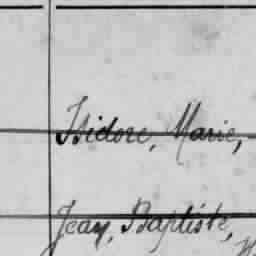 Isidore, Marie,
Jean, Baptiste,